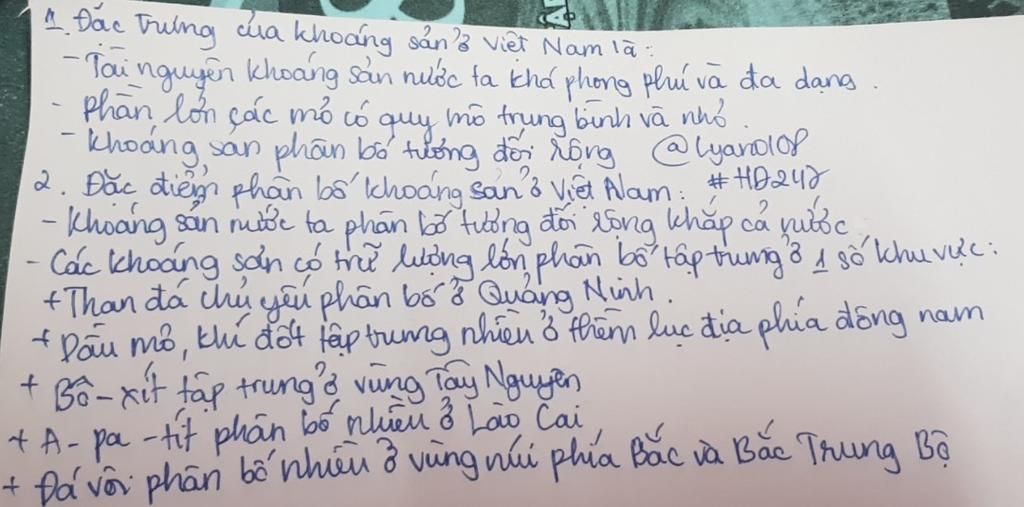 1. Đặc trưng của khoáng sản ở Việt Nam là:
- Tài nguyên khoáng sản nước ta khá phong phú và đa dạng.
- Phần lớn các mỏ có quy mô trung bình và nhỏ.
- Khoáng sản phân bố tương đối rộng @lyano108
2. Đặc điểm phân bố khoáng sản ở Việt Nam: #HD247
- Khoáng sản nước ta phân bố tương đối rộng khắp cả nước
- Các khoáng sản có trữ lượng lớn phân bố tập trung ở 1 số khu vực:
+ Than đá chủ yếu phân bố ở Quảng Ninh.
+ Dầu mỏ, khí đốt tập trung nhiều ở thềm lục địa phía đông nam
+ Bô-xít tập trung ở vùng Tây Nguyên
+ A-pa-tít phân bố nhiều ở Lào Cai
+ Đá vôi phân bố nhiều ở vùng núi phía Bắc và Bắc Trung Bộ